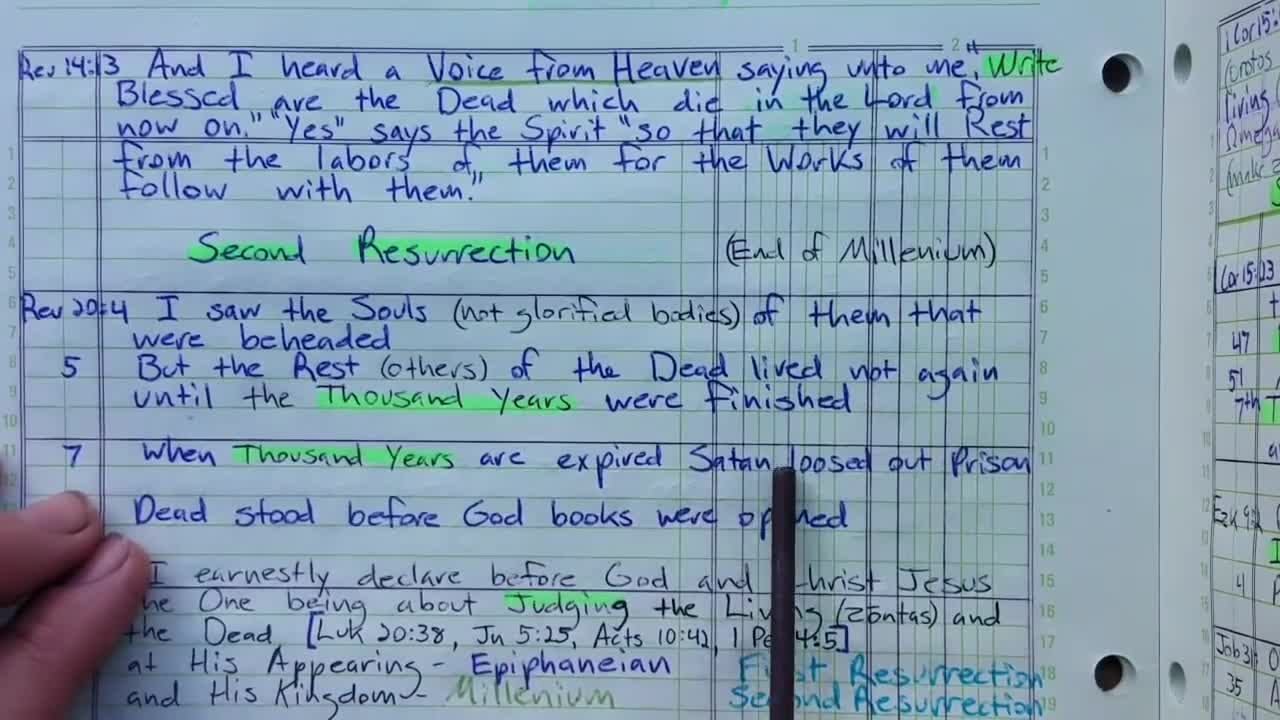 1 2
Rev 14:13 And I heard a Voice from Heaven saying unto me, "Write
Blessed are the Dead which die in the Lord from
now on." "Yes" says the Spirit "so that they will Rest
from the labors of them for the Works of them
follow with them."
Second Resurrection (End of Millenium)
Rev 20:4 I saw the Souls (not glorified bodies) of them that
were beheaded
5 But the Rest (others) of the Dead lived not again
until the Thousand Years were finished
7 When Thousand Years are expired Satan loosed out Prison
Dead stood before God books were
I earnestly declare before God and Christ Jesus
the One being about Judging the Living (zontas) and
the Dead [Luk 20:38, Jn 5:25, Acts 10:42, 1 Pe 4:5]
at His Appearing - Epiphaneian First Resurrection
and His Kingdom - Millenium Second Resurrection
1 Cor 15:
living
Cor 15:23
47
51
7th
4
Job 31:
35